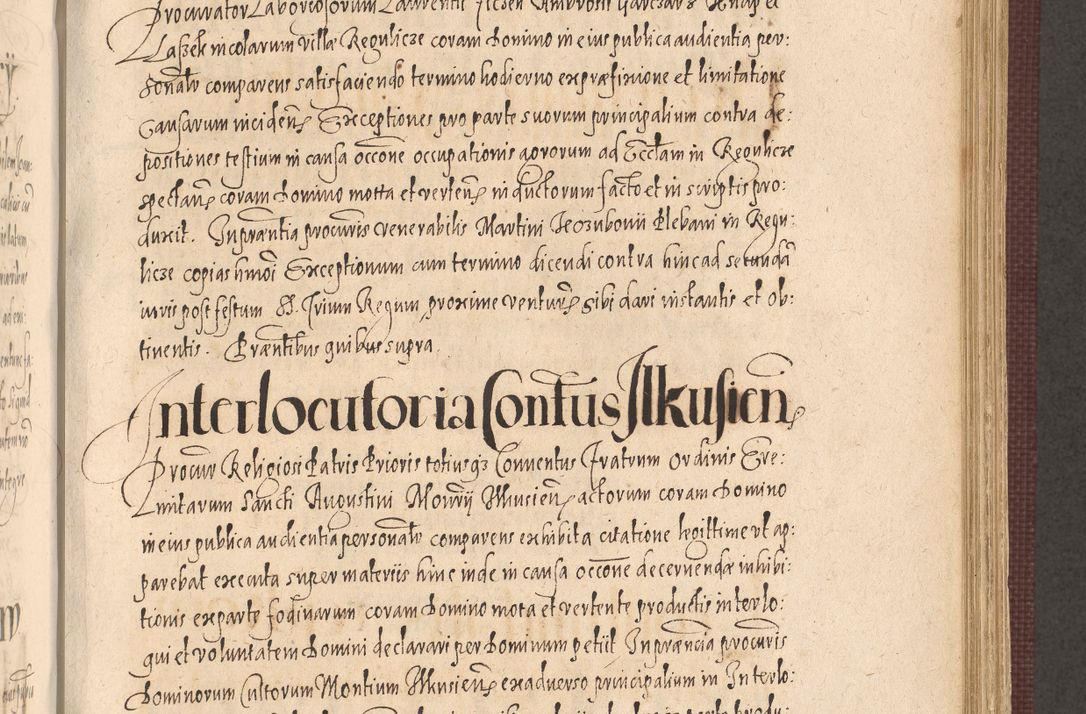 Procurator Laboriosorum Laurentii Ambrosii Garczarz Knap et
Laszek incolarum villæ Regulicze coram Domino in eius publica audientia per:
sonalr comparens satisfaciendo termino hodierno ex præfixione et limitatione
causarum inciden Exceptiones pro parte suorum principalium contra de:
positiones testium in causa occone occupationis agrorum ad Ecclam in Regulicze
spectan coram Domino motta et verten inductorum facto et in scriptis pro:
duxit. In præntia procuris venerabilis Martini Plebani in Regu:
licze copias hmoi Exceptionum cum termino dicendi contra hinc ad secundã
iuris post festum S. Trium Regum proxime ventur sibi dari instantis et ob:
tinentis. Præntibus quibus supra
Interlocutoria Contus Ilkusien
Procur Religiosi Patris Prioris totiusq3 Conventus Fratrum Ordinis Ere:
mitarum Sancti Augustini Monrii Ilkusien actorum coram Domino
in eius publica audientia personalr comparens exhibita citatione legittime ut ap:
parebat executa super materiis hinc inde in causa occone decernendæ inhibi:
tionis ex parte fodinarum coram Domino mota et vertente productis interlo:
qui et voluntatem Domini declarari per Dominum petiit In præncia procuris
Dominorum Cultorum Montium Ilkusien ex adverso principalium in Interlo: